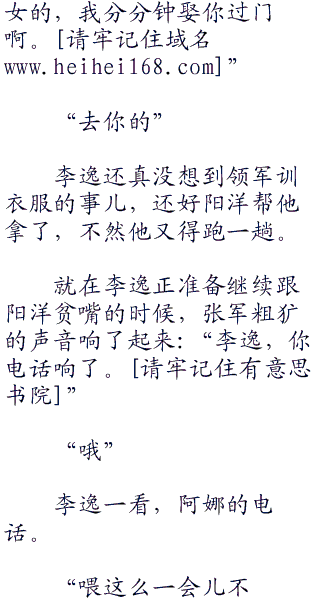 女的，我分分钟娶你过门
啊。[请牢记住域名
www.heihei168.com]”
“去你的”
李逸还真没想到领军训
衣服的事儿，还好阳洋帮他
拿了，不然他又得跑一趟。
就在李逸正准备继续跟
阳洋贫嘴的时候，张军粗犷
的声音响了起来：“李逸，你
电话响了。[请牢记住有意思
书院]”
“哦”
李逸一看，阿娜的电
话。
“喂这么一会儿不